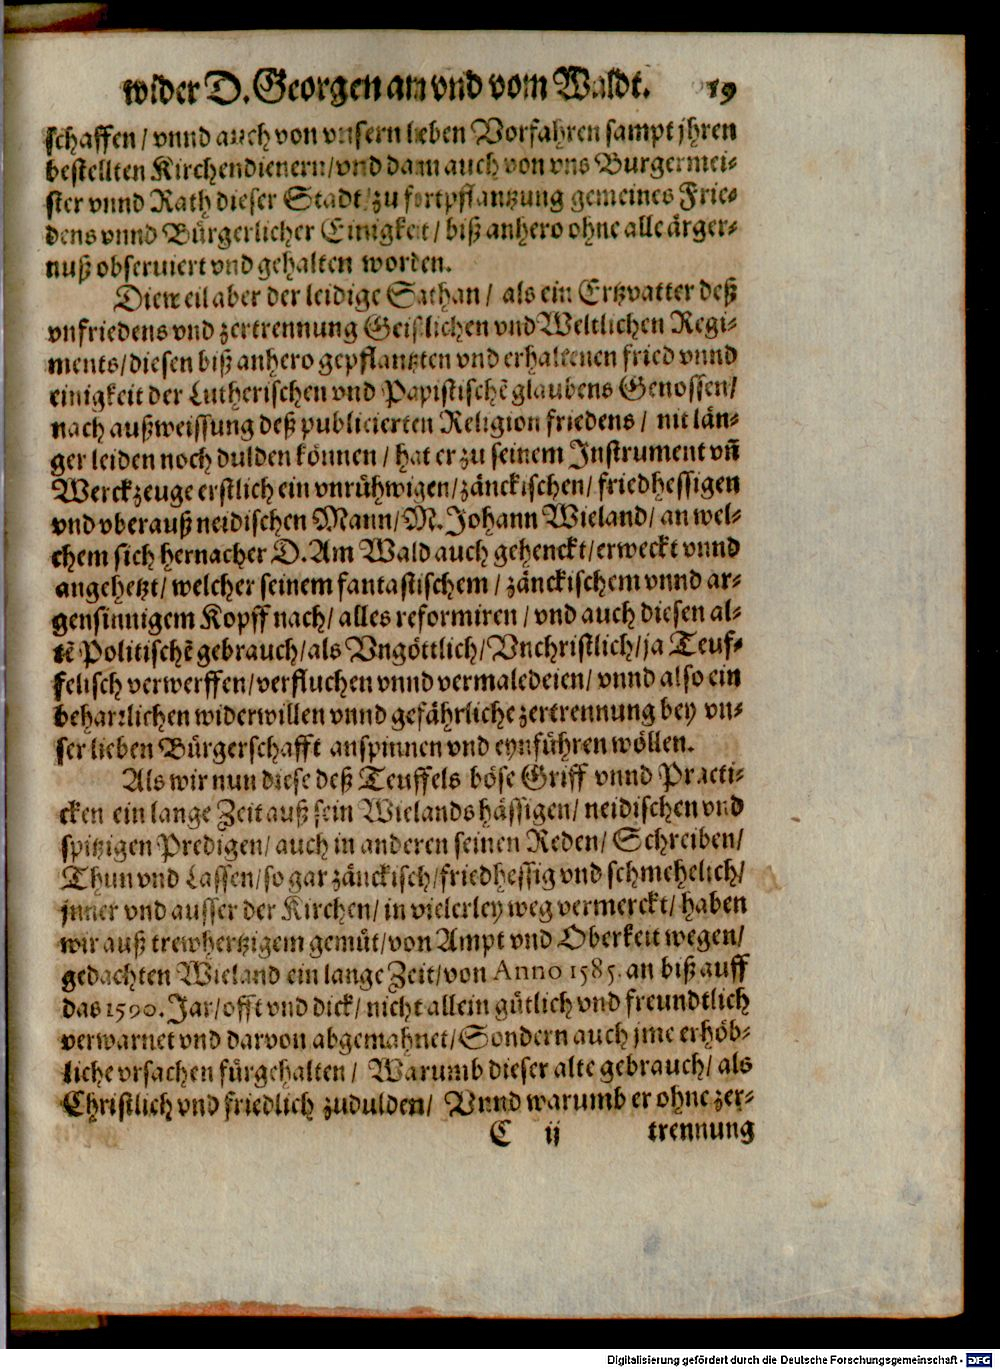 wider D. Georgen am vnd vom Waldt. 19
schaffen / vnnd auch von vnsern lieben Vorfahren sampt jhren
bestellten Kirchendienern / vnd dann auch von vns Burgermei-
ster vnnd Rath dieser Stadt / zu fortpflantzung gemeines Frie-
dens vnnd Bürgerlicher Einigkeit / biß anhero ohne alle ärger-
nuß obseruiert vnd gehalten worden.
Dieweil aber der leidige Sathan / als ein Ertzvatter deß
vnfriedens vnd zertrennung Geistlichen vnd Weltlichen Regi-
ments / diesen biß anhero gepflantzten vnd erhaltenen fried vnnd
einigkeit der Lutherischen vnd Papistischẽ glaubens Genossen /
nach außweissung deß publicierten Religion friedens / nit län-
ger leiden noch dulden können / hat er zu seinem Instrument vñ
Werckzeuge erstlich ein vnrühwigen / zänckischen / friedhessigen
vnd vberauß neidischen Mann / M. Johann Wieland / an wel-
chem sich hernacher D. Am Wald auch gehenckt / erweckt vnnd
angehetzt / welcher seinem fantastischem / zänckischem vnnd ar-
gensinnigem Kopff nach / alles reformiren / vnd auch diesen al-
tẽ Politischẽ gebrauch / als Vngöttlich / Vnchristlich / ja Teuf-
felisch verwerffen / verfluchen vnnd vermaledeien / vnnd also ein
beharrlichen widerwillen vnnd gefährliche zertrennung bey vn-
ser lieben Bürgerschafft anspinnen vnd eynführen wöllen.
Als wir nun diese deß Teuffels böse Griff vnnd Practi-
cken ein lange Zeit auß sein Wielands hässigen / neidischen vnd
spitzigen Predigen / auch in anderen seinen Reden / Schreiben /
Thun vnd Lassen / so gar zänckisch / friedhessig vnd schmehelich /
jnner vnd ausser der Kirchen / in vielerley weg vermerckt / haben
wir auß trewhertzigem gemüt / von Ampt vnd Oberkeit wegen /
gedachten Wieland ein lange Zeit / von Anno 1585. an biß auff
das 1590. Jar / offt vnd dick / nicht allein gütlich vnd freundtlich
verwarnet vnd darvon abgemahnet / Sondern auch jme erhöb-
liche vrsachen fürgehalten / Warumb dieser alte gebrauch / als
Christlich vnd friedlich zudulden / Vnnd warumb er ohne zer-
C ij trennung
Digitalisierung gefördert durch die Deutsche Forschungsgemeinschaft - DFG